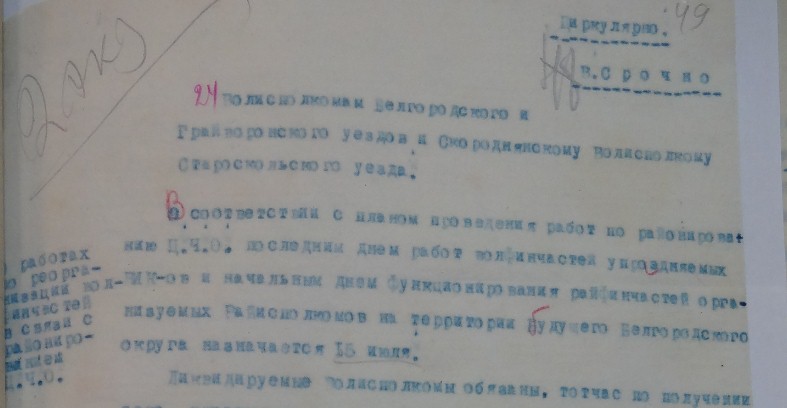 49
Циркулярно.
В.Срочно
2 экз
24 Волисполкомам Белгородского и
Грайворонского уездов и Скороднянскому Волисполкому
Старооскольского уезда.
В соответствии с планом проведения работ по районирова-
нию Ц.Ч.О. последним днем работ волфинчастей упраздняемых
ВИК-ов и начальным днем функционирования райфинчастей орга-
низуемых Райисполкомов на территории будущего Белгородского
округа назначается 15 июля.
Ликвидируемые Волисполкомы обязаны, тотчас по получении
о работах
по реорга-
низации вол-
финчастей
в связи с
райониро-
ванием
Ц.Ч.О.